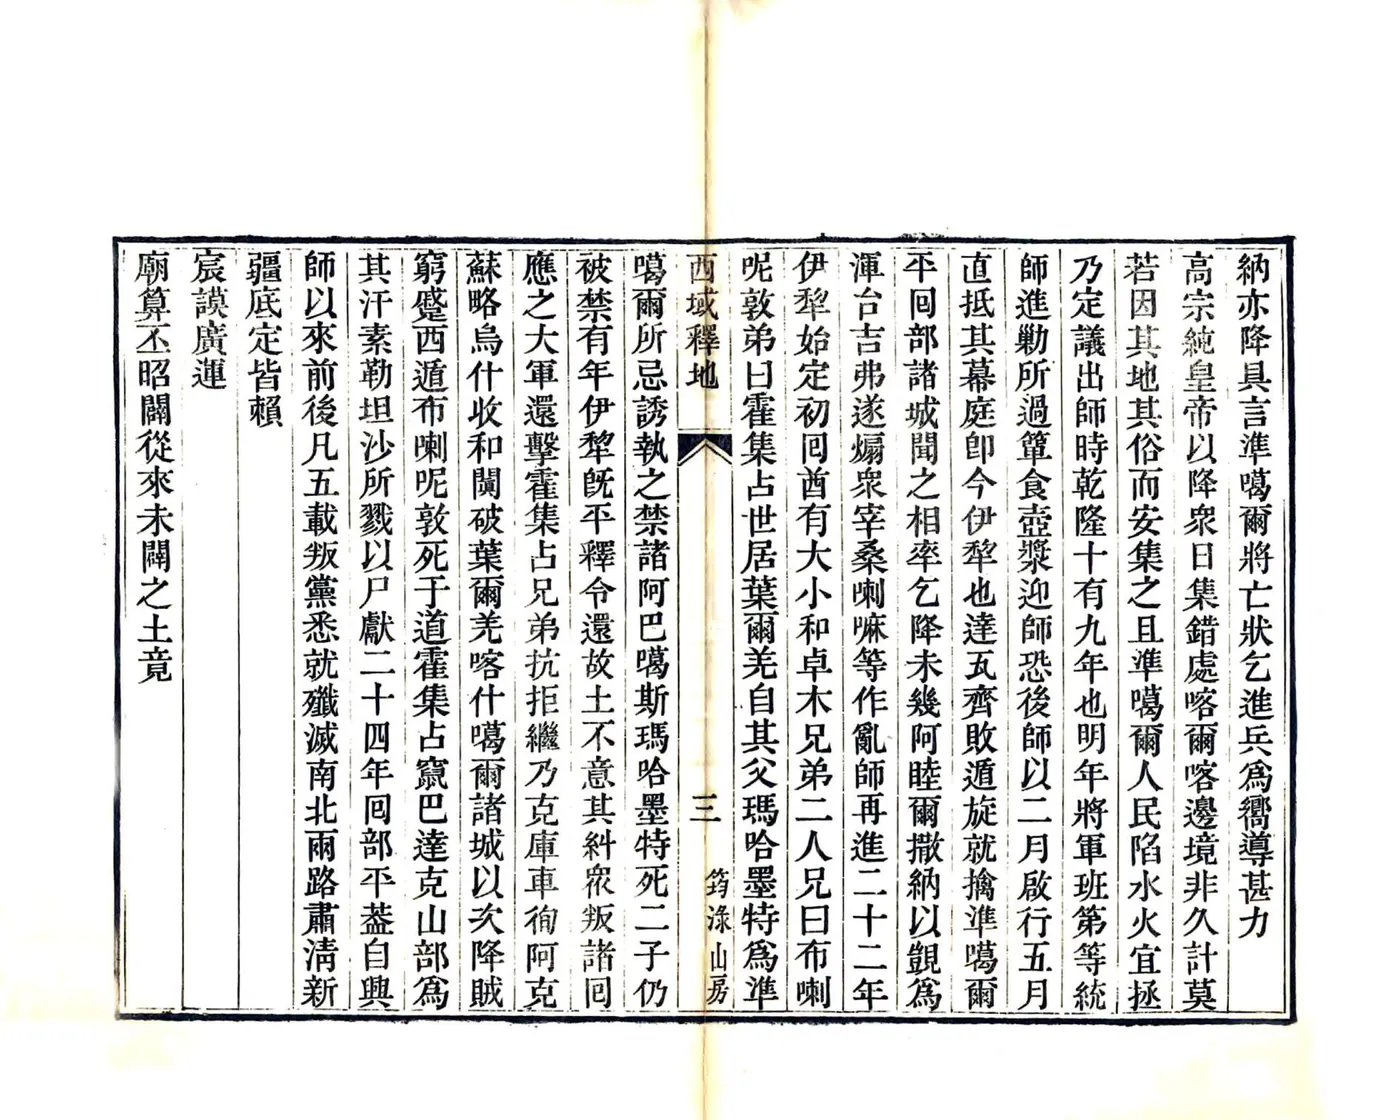 納亦降具言準噶爾將亡狀乞進兵爲嚮導甚力
高宗純皇帝以降衆日集錯處喀爾喀邊境非久計莫
若因其地其俗而安集之且準噶爾人民陷水火宜拯
乃定議出師時乾隆十有九年也明年將軍班第等統
師進勦所過簞食壺漿迎師恐後師以二月啟行五月
直抵其幕庭卽今伊犂也達瓦齊敗遁旋就擒準噶爾
平囘部諸城聞之相率乞降未幾阿睦爾撒納以覬爲
渾台吉弗遂煽衆宰桑喇嘛等作亂師再進二十二年
伊犂始定初囘酋有大小和卓木兄弟二人兄曰布喇
呢敦弟曰霍集占世居葉爾羌自其父瑪哈墨特爲準
西域釋地
三
筠淥山房
噶爾所忌誘執之禁諸阿巴噶斯瑪哈墨特死二子仍
被禁有年伊犂旣平釋令還故土不意其糾衆叛諸囘
應之大軍還擊霍集占兄弟抗拒繼乃克庫車徇阿克
蘇略烏什收和闐破葉爾羌喀什噶爾諸城以次降賊
窮蹙西遁布喇呢敦死于道霍集占竄巴達克山部爲
其汗素勒坦沙所戮以尸獻二十四年囘部平葢自興
師以來前後凡五載叛黨悉就殲滅南北兩路肅淸新
疆底定皆賴
宸謨廣運
廟算丕昭闢從來未闢之土竟